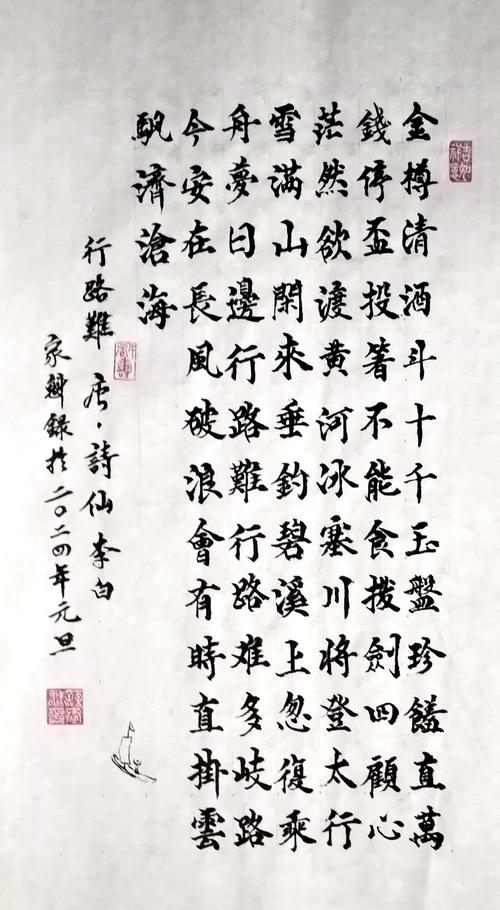 金樽清酒斗十千玉盤珍饈直萬
錢停盃投箸不能食拔劍四顧心
茫然欲渡黃河冰塞川將登太行
雪滿山閑來垂釣碧溪上忽復乘
舟夢日邊行路難行路难多岐路
今安在長風破浪會有時直掛雲
帆濟滄海
行路難 唐·詩仙李白
家録於二〇二四年元旦